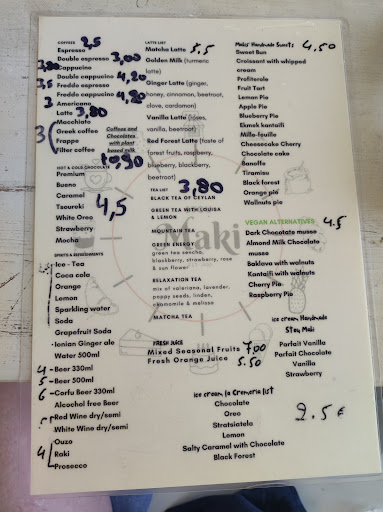 COFFEES 2,5
Espresso
Double espresso 3,00
3,80 Cappuccino
Double cappuccino 4,20
3,5 Freddo espresso
Freddo cappuccino 4,20
3 Americano
Latte 3,80
Macchiato
3 Greek coffee
Frappe
Filter coffee
Coffees and
Chocolates
with plant
based milk
+0,30
HOT & COLD CHOCOLATE
Premium
Bueno
Caramel 4,5
Tsoureki
White Oreo
Strawberry
Mocha
SPIRITS & REFRESHMENTS
Ice - Tea
Coca cola
Orange
Lemon
Sparkling water
Soda
Grapefruit Soda
Ionian Ginger ale
Water 500ml
4 Beer 330ml
5 Beer 500ml
6 Corfu Beer 330ml
Alcochol free Beer
Red Wine dry/semi
White Wine dry/semi
4 Ouzo
Raki
Prosecco
LATTE LIST
Matcha Latte 5,5
Golden Milk (turmeric
latte)
Ginger Latte (ginger,
honey, cinnamon, beetroot,
clove, cardamon)
Vanilla Latte (cloves,
vanilla, beetroot)
Red Forest Latte (taste of
forest fruits, raspberry,
blueberry, blackberry,
beetroot)
TEA LIST 3,80
BLACK TEA OF CEYLAN
GREEN TEA WITH LOUISA
& LEMON
MOUNTAIN TEA
GREEN ENERGY
green tea sencha,
blackberry, strawberry, rose
& sun flower
RELAXATION TEA
mix of valeriana, lavender,
poppy seeds, linden,
chamomile & melissa
MATCHA TEA
Maki
FRESH JUICE
Mixed Seasonal Fruits 7,00
Fresh Orange Juice 5.50
Maki Handmade Sweets 4,50
Sweet Bun
Croissant with whipped
cream
Profiterole
Fruit Tart
Lemon Pie
Apple Pie
Blueberry Pie
Ekmek kantaifi
Mille-feuille
Cheesecake Cherry
Chocolate cake
Banoffe
Tiramisu
Black forest
Orange pie
Walnuts pie
VEGAN ALTERNATIVES 4.5
Dark Chocolate musse
Almond Milk Chocolate
musse
Baklava with walnuts
Kantaifi with walnuts
Cherry Pie
Raspberry Pie
ice cream Handmade
Stey Maki
Parfait Vanilla
Parfait Chocolate
Vanilla
Strawberry
ice cream la Cremeria list
Chocolate
Oreo
Stratsiatela
Lemon
Salty Caramel with Chocolate
Black Forest
2.5 €